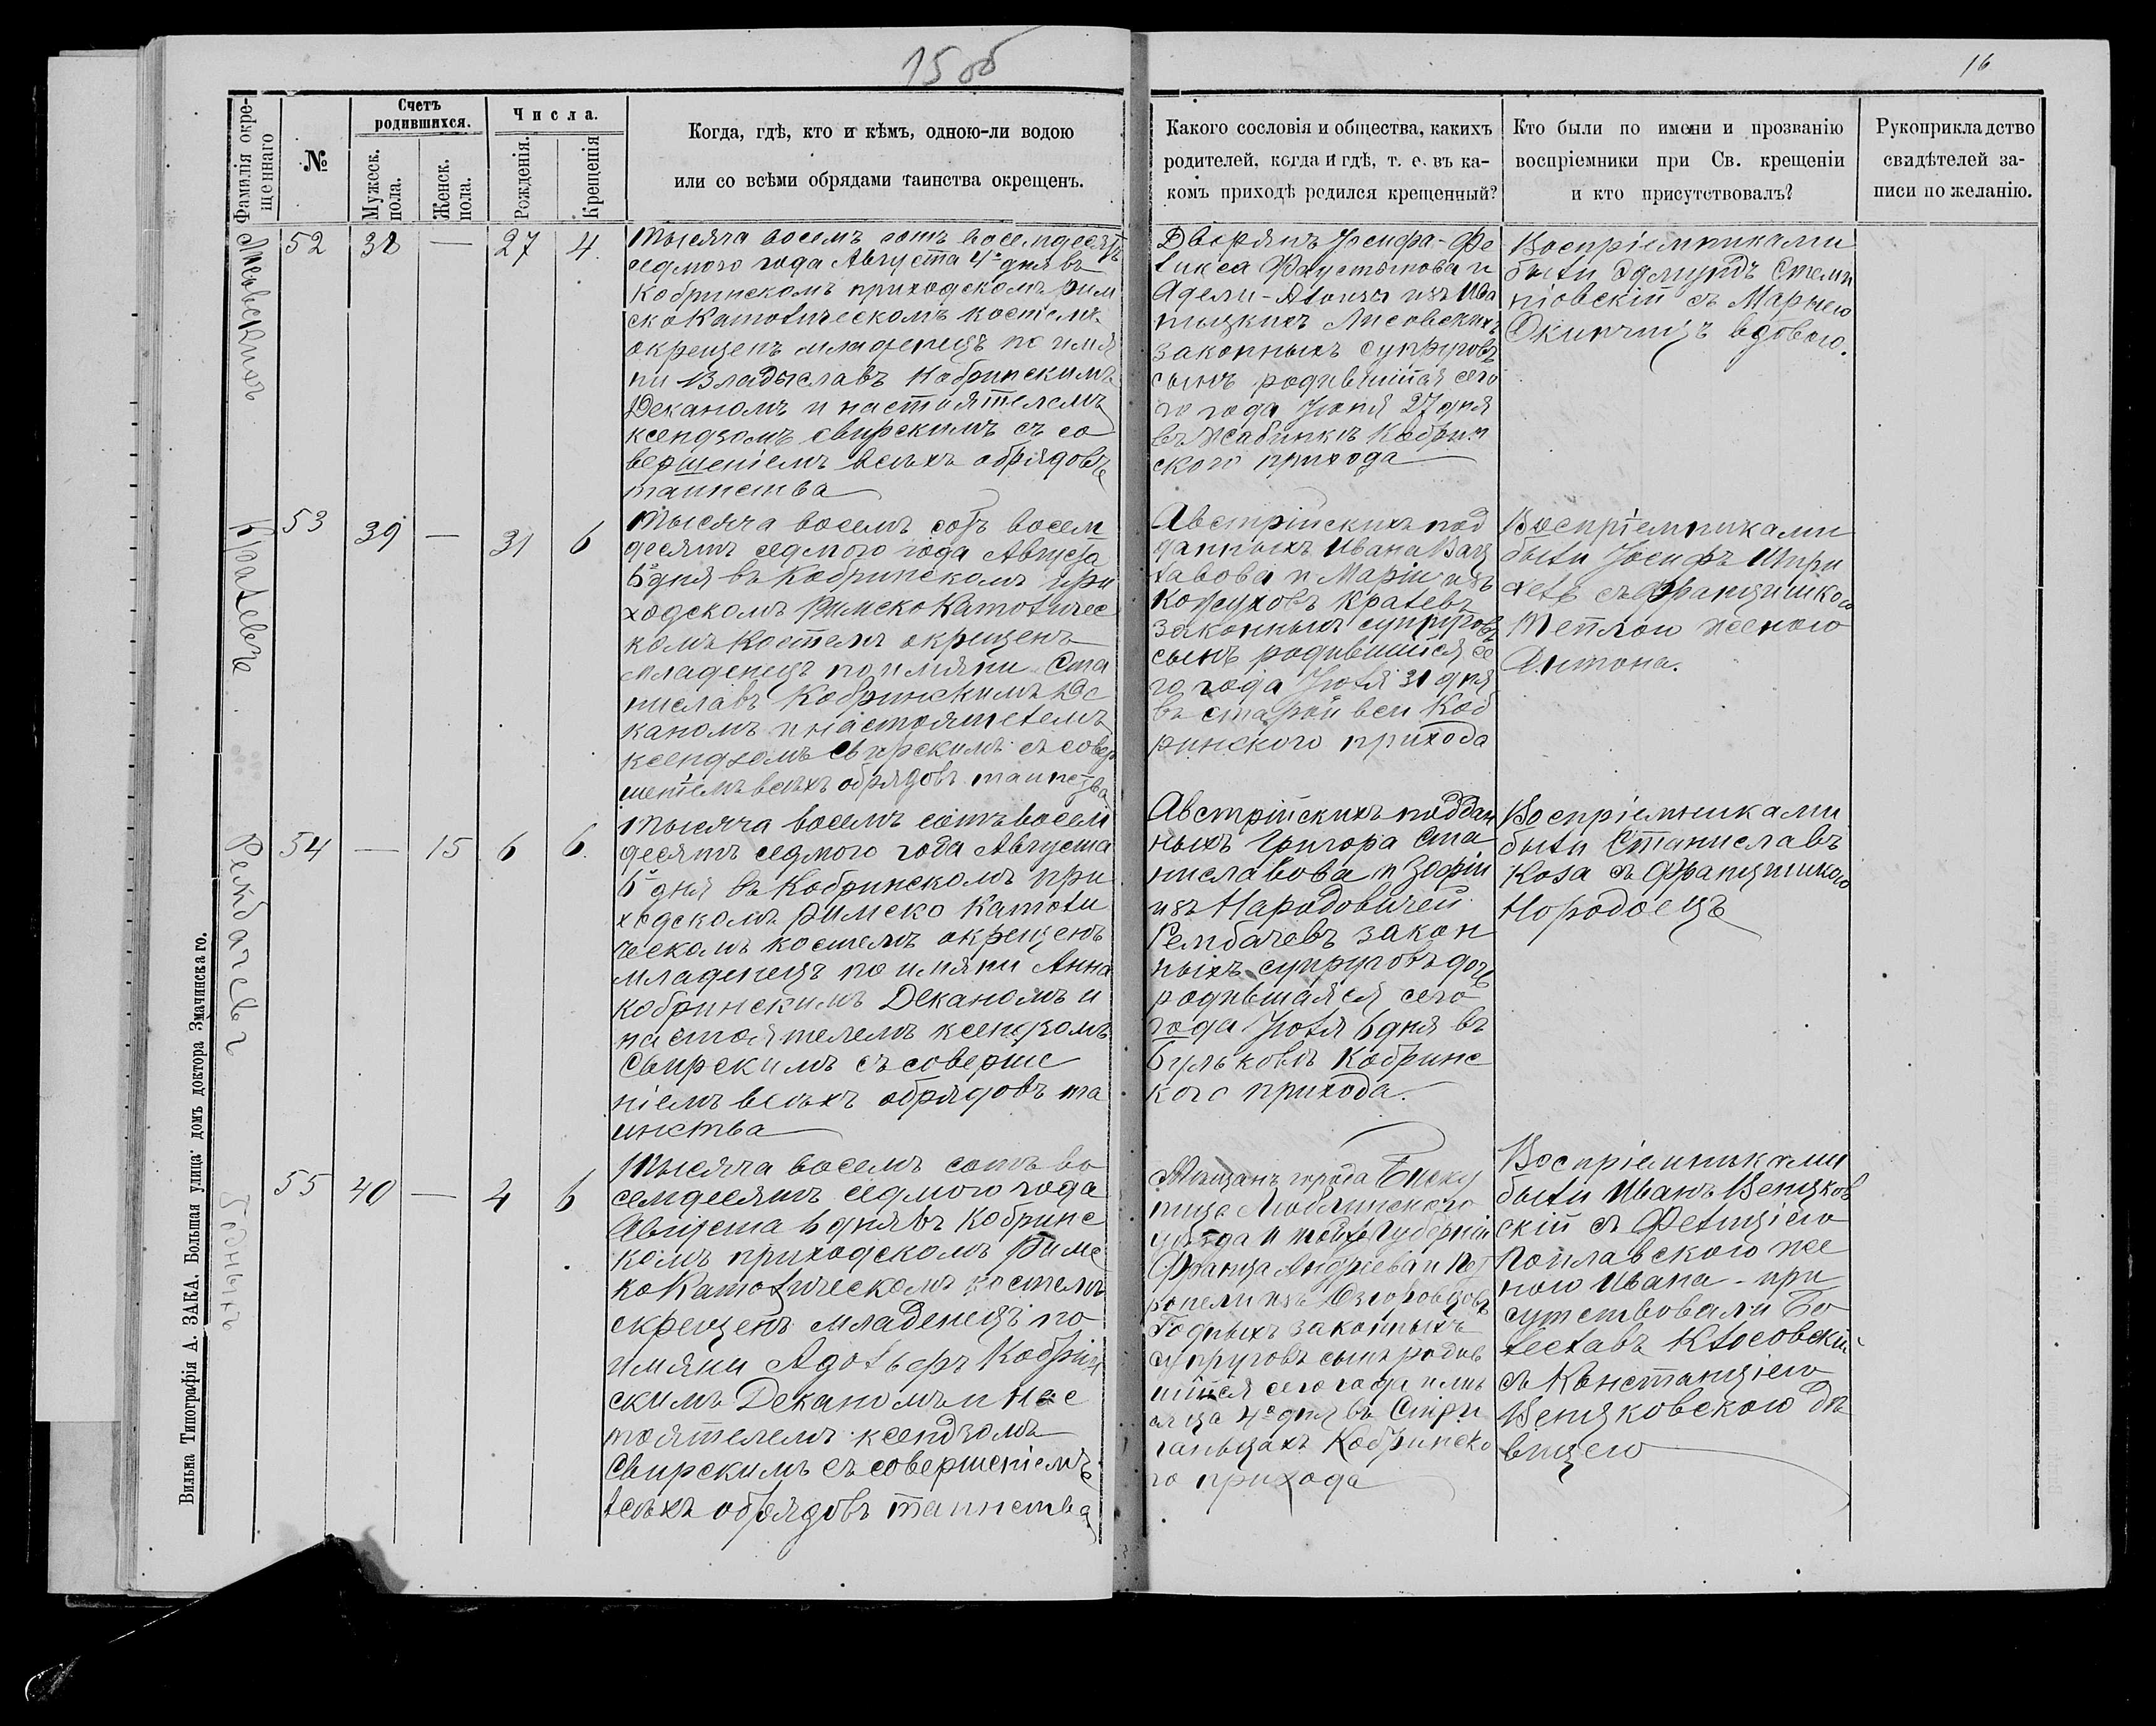 15 об
16
Фамилія окре-
щеннаго
№
Счетъ
родившихся.
Мужеск.
пола.
Женск.
пола.
Числа.
Рожденія.
Крещенія
Когда, гдѣ, кто и кѣмъ, одною-ли водою
или со всѣми обрядами таинства окрещенъ.
Какого сословія и общества, какихъ
родителей, когда и гдѣ, т. е. въ ка-
комъ приходѣ родился крещенный?
Кто были по имени и прозванію
воспріемники при Св. крещеніи
и кто присутствовалъ?
Рукоприкладство
свидѣтелей за-
писи по желанію.
52 38 — 27 4
Тысяча восемъ сотъ восемдесятъ
седмого года Августа 4го дня въ
Кобринскомъ приходскомъ рим
ско Католическомъ костелѣ
окрещенъ младенецъ по имя
ни Владыславъ Кобринскимъ
Деканомъ и настоятелемъ
ксендзомъ Свирскимъ съ со
вершеніемъ всѣхъ обрядовъ
таинства
Дворянъ Іосифа-Фе
ликса Фаустынова и
Адели-Алоизы изъ Ива
Лисовскихъ
законныхъ супруговъ
сынъ родившійся сего
го года Іюня 27 дня
въ Жабинкѣ Кобрин
ского прихода
Воспріемниками
были Эдмундъ Стемп
ніовскій съ Маріею
вдовою.
Красевъ
53 39 — 31 6
Тысяча восемъ сотъ восем
десятъ седмого года Августа
6го дня въ Кобринскомъ при
ходскомъ Римско Католичес
комъ Костелѣ окрещенъ
младенецъ по имяни Ста
ниславъ Кобринскимъ Де
каномъ и настоятелемъ
ксендзомъ Свирскимъ съ совер
шеніемъ всѣхъ обрядовъ таинства
Австрійскихъ под
данныхъ Ивана Вац
лавова и Маріи изъ
Кожуховъ Кралевъ
законныхъ супруговъ
сынъ родившійся се
го года Іюля 31 дня
въ старой вси Коб
ринского прихода
Воспріемниками
были Іосифъ
съ Францишкою
женою
Антона.
Рембачевъ
54 — 15 6 6
Тысяча восемъ сотъ восем
десятъ седмого года Августа
6го дня въ Кобринскомъ при
ходскомъ римско Католи
ческомъ костелѣ окрещенъ
младенецъ по имяни Анна
Кобринскимъ Деканомъ и
настоятелемъ ксендзомъ
Свирскимъ съ соверше
ніемъ всѣхъ обрядовъ та
инства
Австрійскихъ поддан
ныхъ Григора Ста
ниславова и Зофіи
изъ Народовичей
Рембачевъ закон
ныхъ супруговъ дочь
родившаяся сего
года Іюля 6 дня въ
Бульковѣ Кобринс
кого прихода.
Воспріемниками
были Станиславъ
Коза съ Францишкою
Городоецъ
Годныхъ
55 40 — 4 6
Тысяча восемъ сотъ во
семдесятъ седмого года
Августа 6 дня въ Кобринс
комъ приходскомъ Римс
ко Католическомъ костелѣ
окрещенъ младенецъ по
имяни Адольфъ Кобрин
скимъ Деканомъ и нас
тоятелемъ ксендзомъ
Свирскимъ съ совершеніемъ
всѣхъ обрядовъ таинства
Мѣщанъ города Биску
пица Люблинского
уѣзда и той же Губерніи
Франца Андреева и Пет
ронели изъ
Годныхъ законныхъ
супруговъ сынъ родив
шійся сего года и мѣ
сяца 4го дня въ Стри
ганьцахъ Кобринско
го прихода
Воспріемниками
были Иванъ Венцков
скій съ Фелиціею
Поплавскою же
ною Ивана - при
сутствовали Бо
леславъ Клосовскій
съ Констанціею
Венцковскою дѣ
вицею
Вильна Типографія А. ЗАКА. Большая улица домъ доктора Змачинскаго.